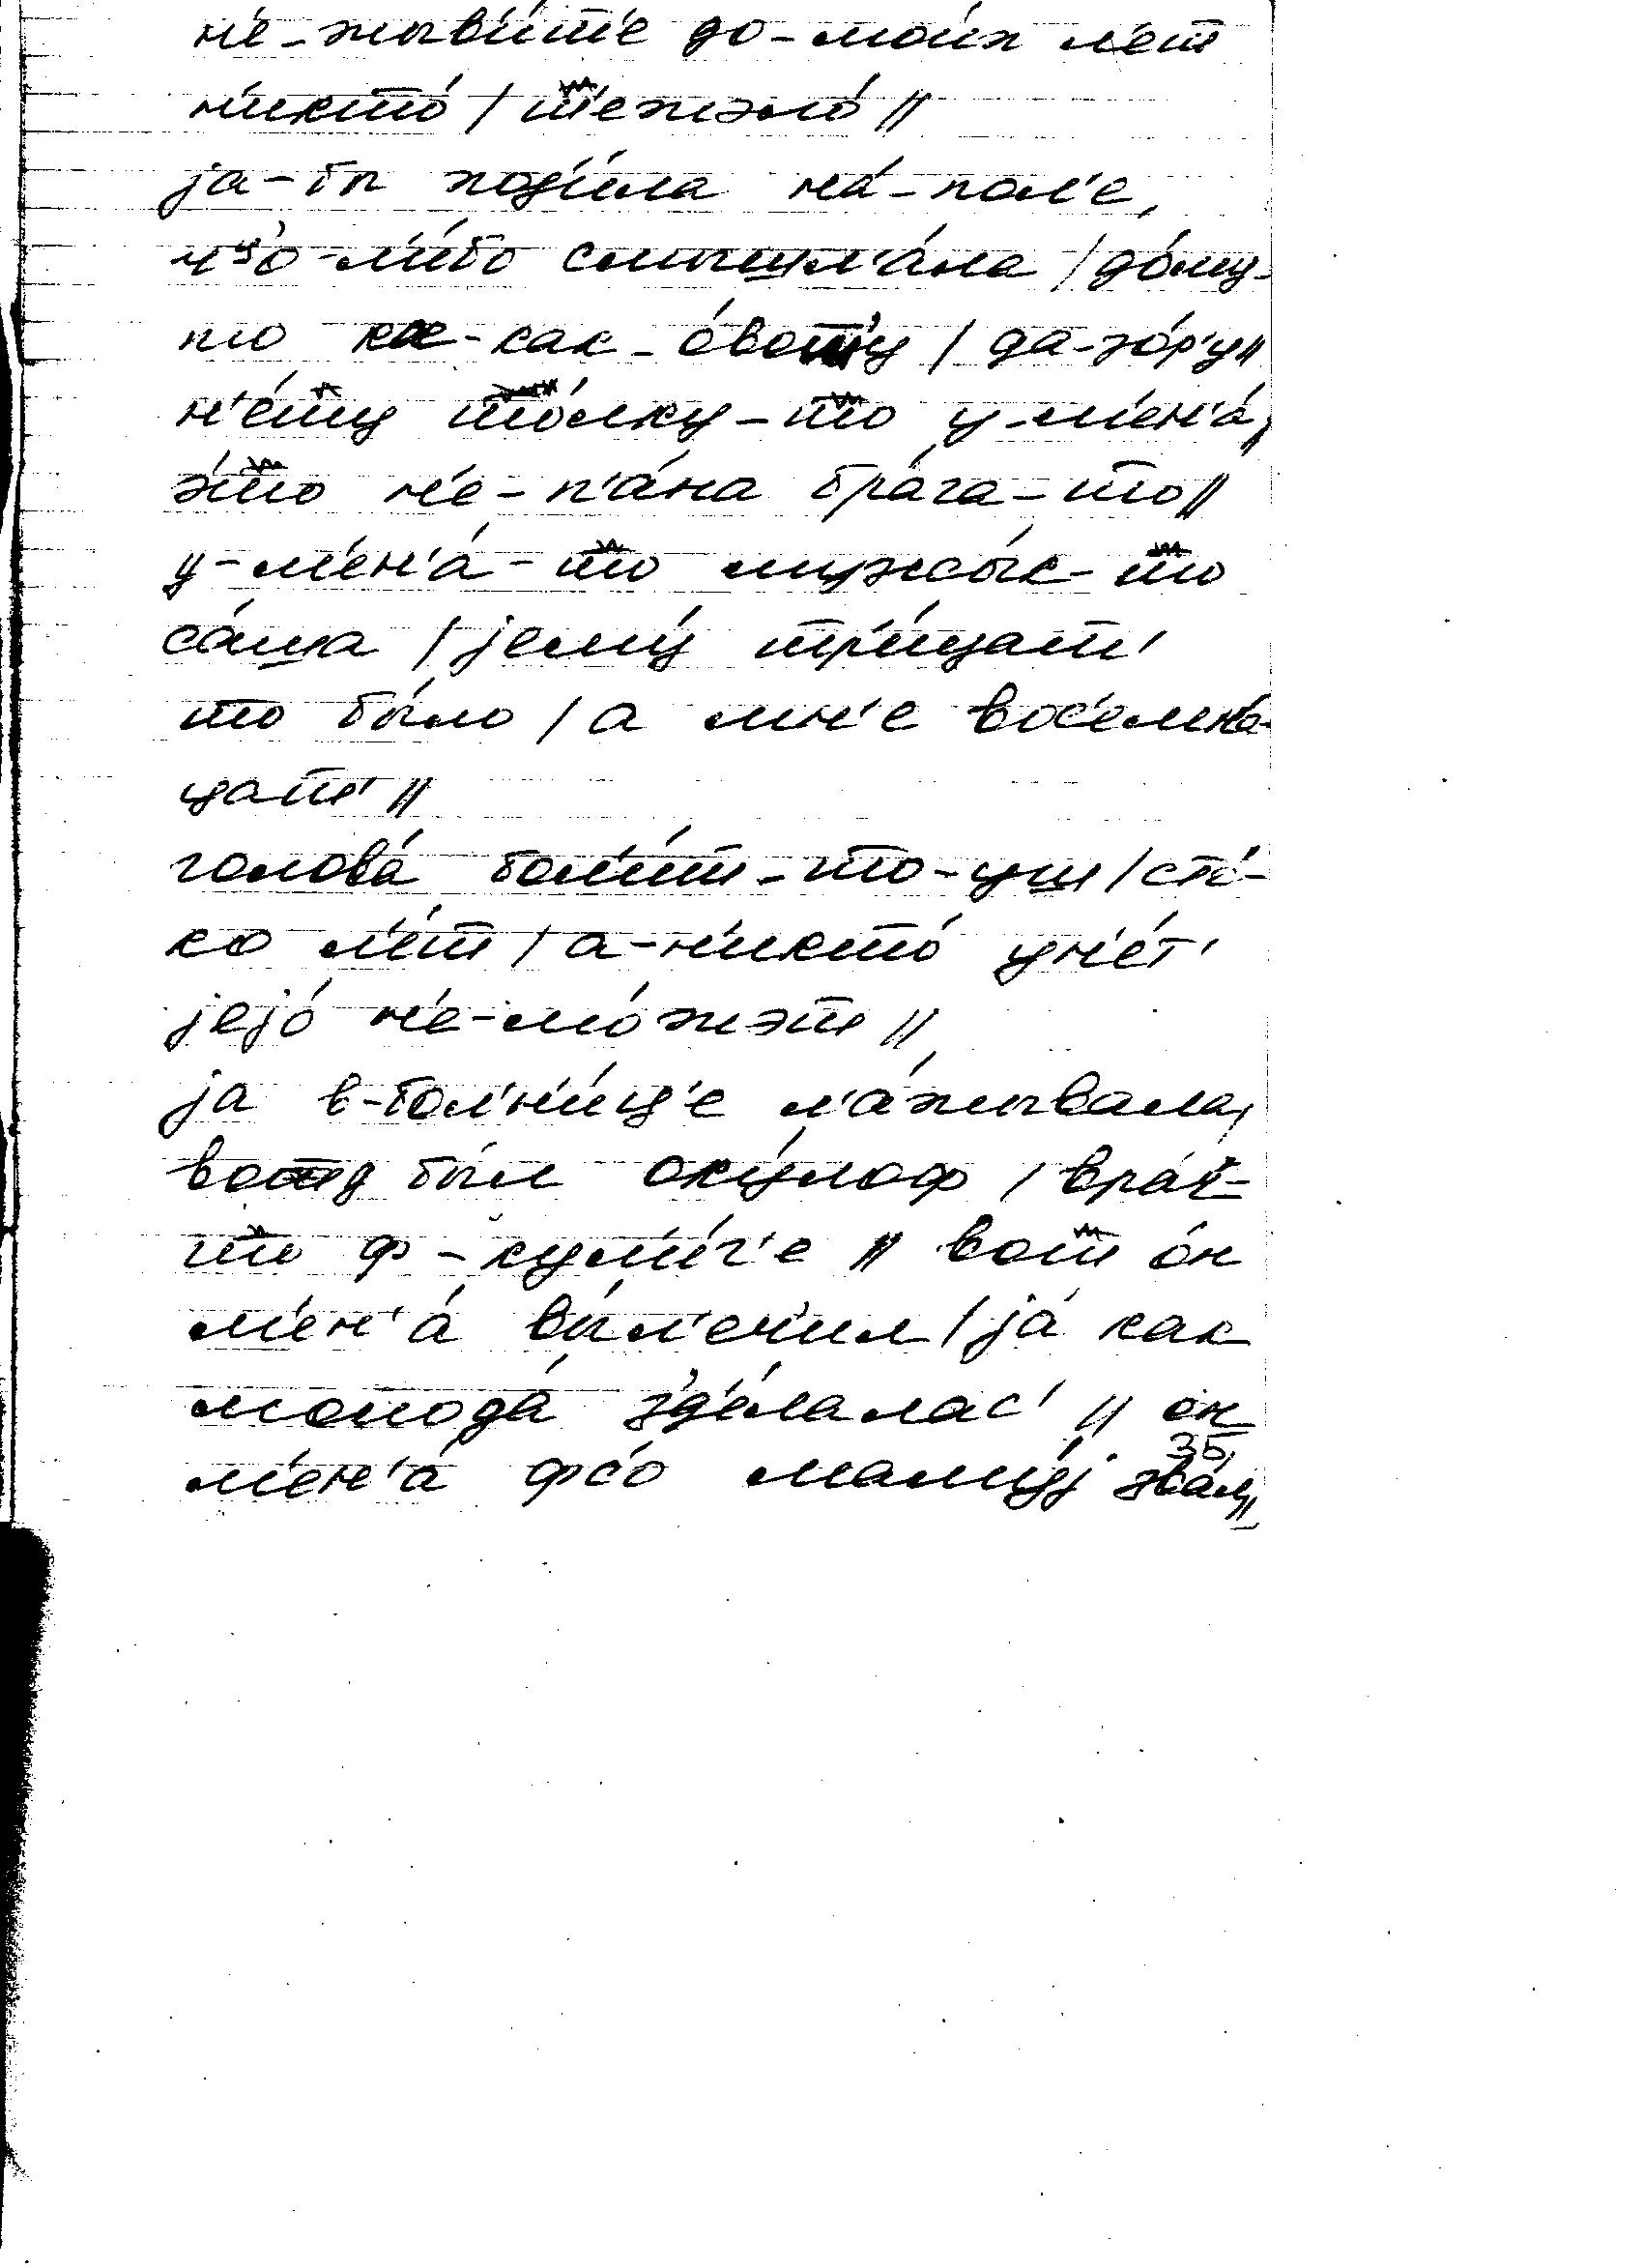 н'е-жыв'ит'е до-мойих л'ет
н'икто́ / т'ежэло́ //
jа-бы ход'и́ла на́-пол'е,
л'и́бо смышл'а́ла / до́му-
как-о́воч'у / да-зо́р'у //
н'е́ту то́лку-то у-м'ен'а́,
э́то н'е-п'а́на бра́га-то //
у-м'ен'а́-то мужы́к-то
са́ша / jему́ три́цат'
то бы́ло / а мн'е вос'емна́-
цат' //
голова́ бол'и́т-то-уш / сто́-
ко л'е́т / а-н'икто́ ун'е́т'
jejó н'е-мо́жэт //
jа в-бол'н'и́ц'е л'а́жывала,
вот был оку́лоф / вра́ч-
то ф-кул'и́г'е // вот о́н
м'ен'а́ вы́л'ечил / já как
молода́ з'д'е́лалас' // он
м'ен'а́ фс'о маму́j зва́л //
35